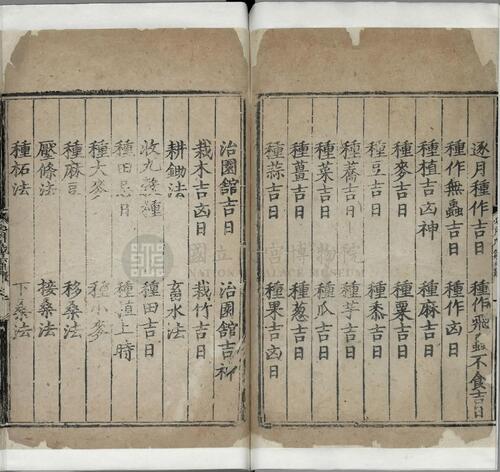 逐月種作吉日 種作飛蟲不食吉日
種作無蟲吉日 種作凶日
種植吉凶神 種麻吉日
種麥吉日 種粟吉日
種豆吉日 種黍吉日
種蕎吉日 種芋吉日
種菜吉日 種瓜吉日
種薑吉日 種葱吉日
種蒜吉日 種果吉凶日
治園舘吉日 治園舘吉
栽木吉凶日 栽竹吉日
耕鋤法 畜水法
收九穀種 種田吉日
種田忌日 種 上時
種大麥 種小麥
種麻豆 移桑法
壓條法 接桑法
種祏法 下桑法
國立 宮博物院
NATIONAL PALACE MUSEUM